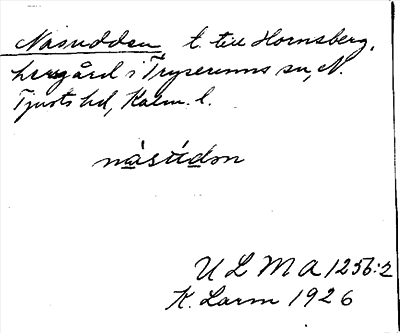 Näsudden, t. till Hornsberg,
herrgård i Tryserums sn, N.
Tjusts hd, Kalm. l.
näsúdən
ULMA 1256:2
K. Larm 1926